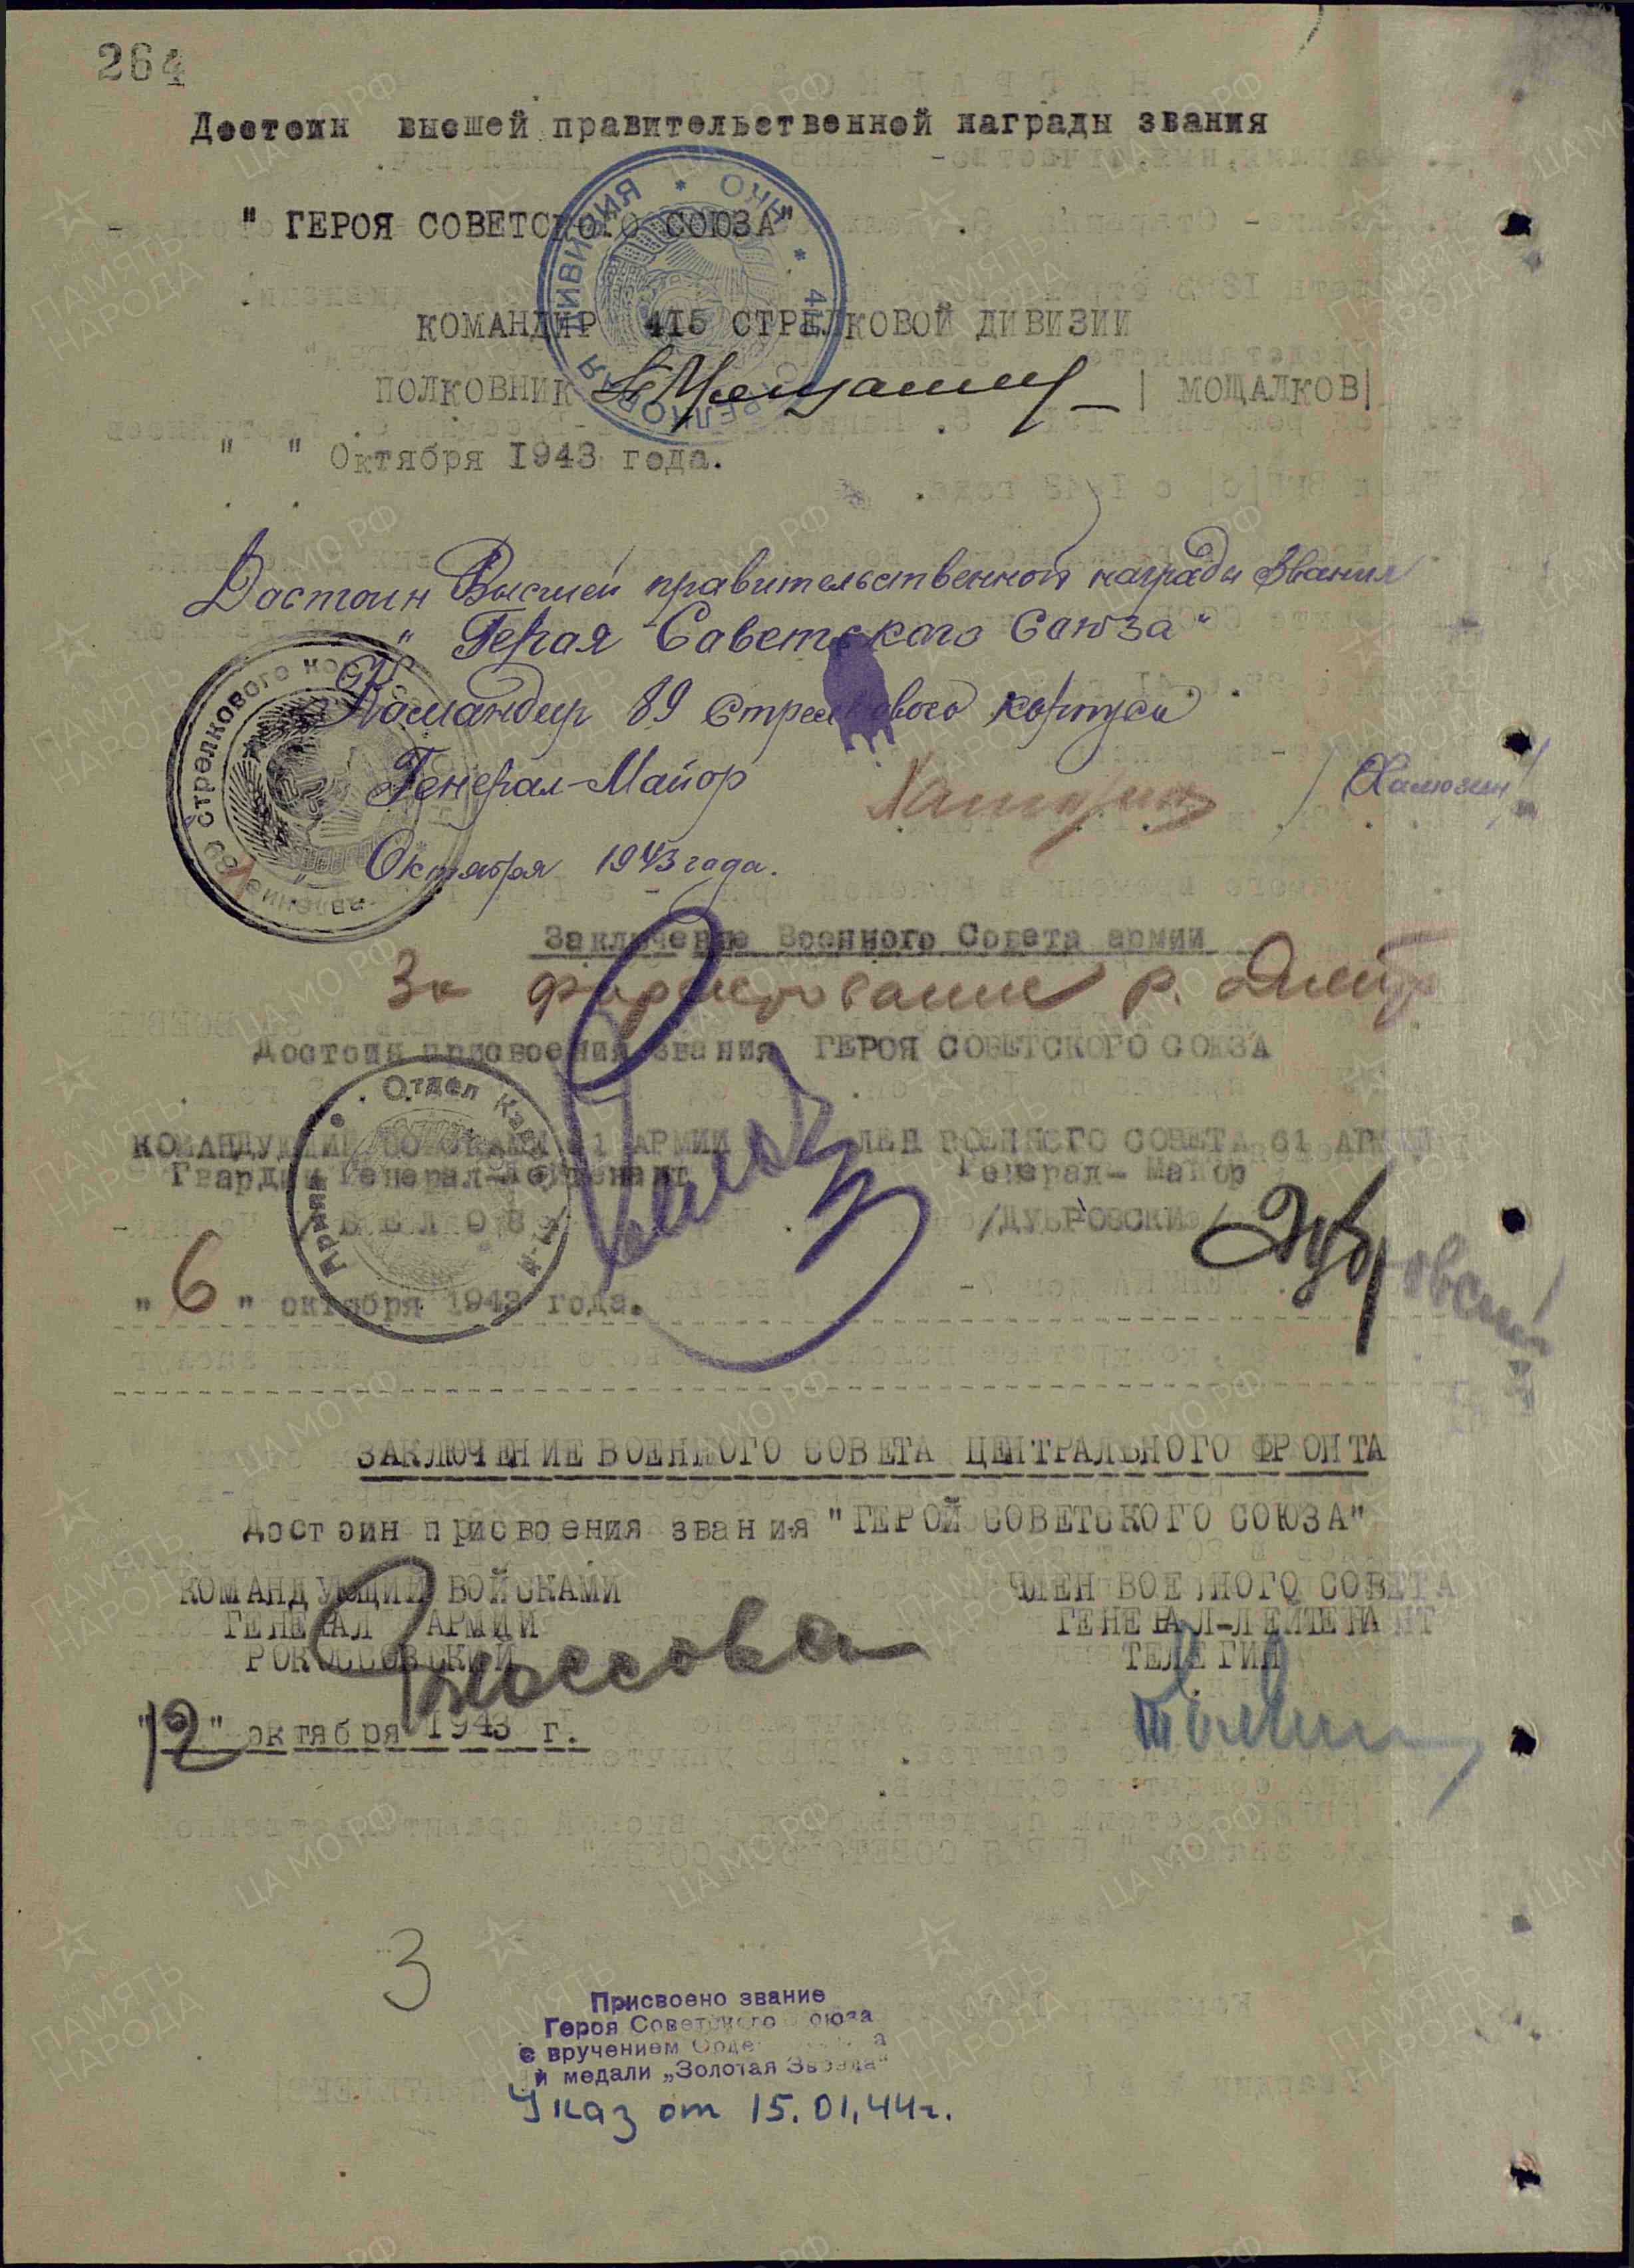 264
Достоин высшей правительственной награды звания
" ГЕРОЯ СОВЕТСКОГО СОЮЗА"
КОМАНДИР 415 СТРЕЛКОВОЙ ДИВИЗИИ
ПОЛКОВНИК | МОЩАЛКОВ|
" " Октября 1943 года.
Достоин Высшей правительственной награды Звания
" Героя Советского Союза "
Командир 89 Стрелкового корпуса
Генерал-Майор / Халюзин/
" Октября 1943 года.
Заключение Военного Совета армии
За форсирование р. Днепр
Достоин присвоения звания ГЕРОЯ СОВЕТСКОГО СОЮЗА
КОМАНДУЮЩИЙ ВОЙСКАМИ 61 АРМИИ ЧЛЕН ВОЕННОГО СОВЕТА 61 АРМИИ
Гвардии Генерал-Лейтенант Генерал- Майор
БЕЛОВ /ДУБРОВСКИЙ/
" 6 " октября 1943 года.
ЗАКЛЮЧЕНИЕ ВОЕННОГО СОВЕТА ЦЕНТРАЛЬНОГО ФРОНТА
Достоин присвоения звания "ГЕРОЙ СОВЕТСКОГО СОЮЗА"
КОМАНДУЮЩИЙ ВОЙСКАМИ ЧЛЕН ВОЕННОГО СОВЕТА
ГЕНЕРАЛ АРМИИ ГЕНЕРАЛ-ЛЕЙТЕНАНТ
РОКОССОВСКИЙ ТЕЛЕГИН
"12" октября 1943 г.
3
Присвоено звание
Героя Советского Союза
с вручением Орде
и медали „Золотая Звезда"
Указ от 15.01.44г.